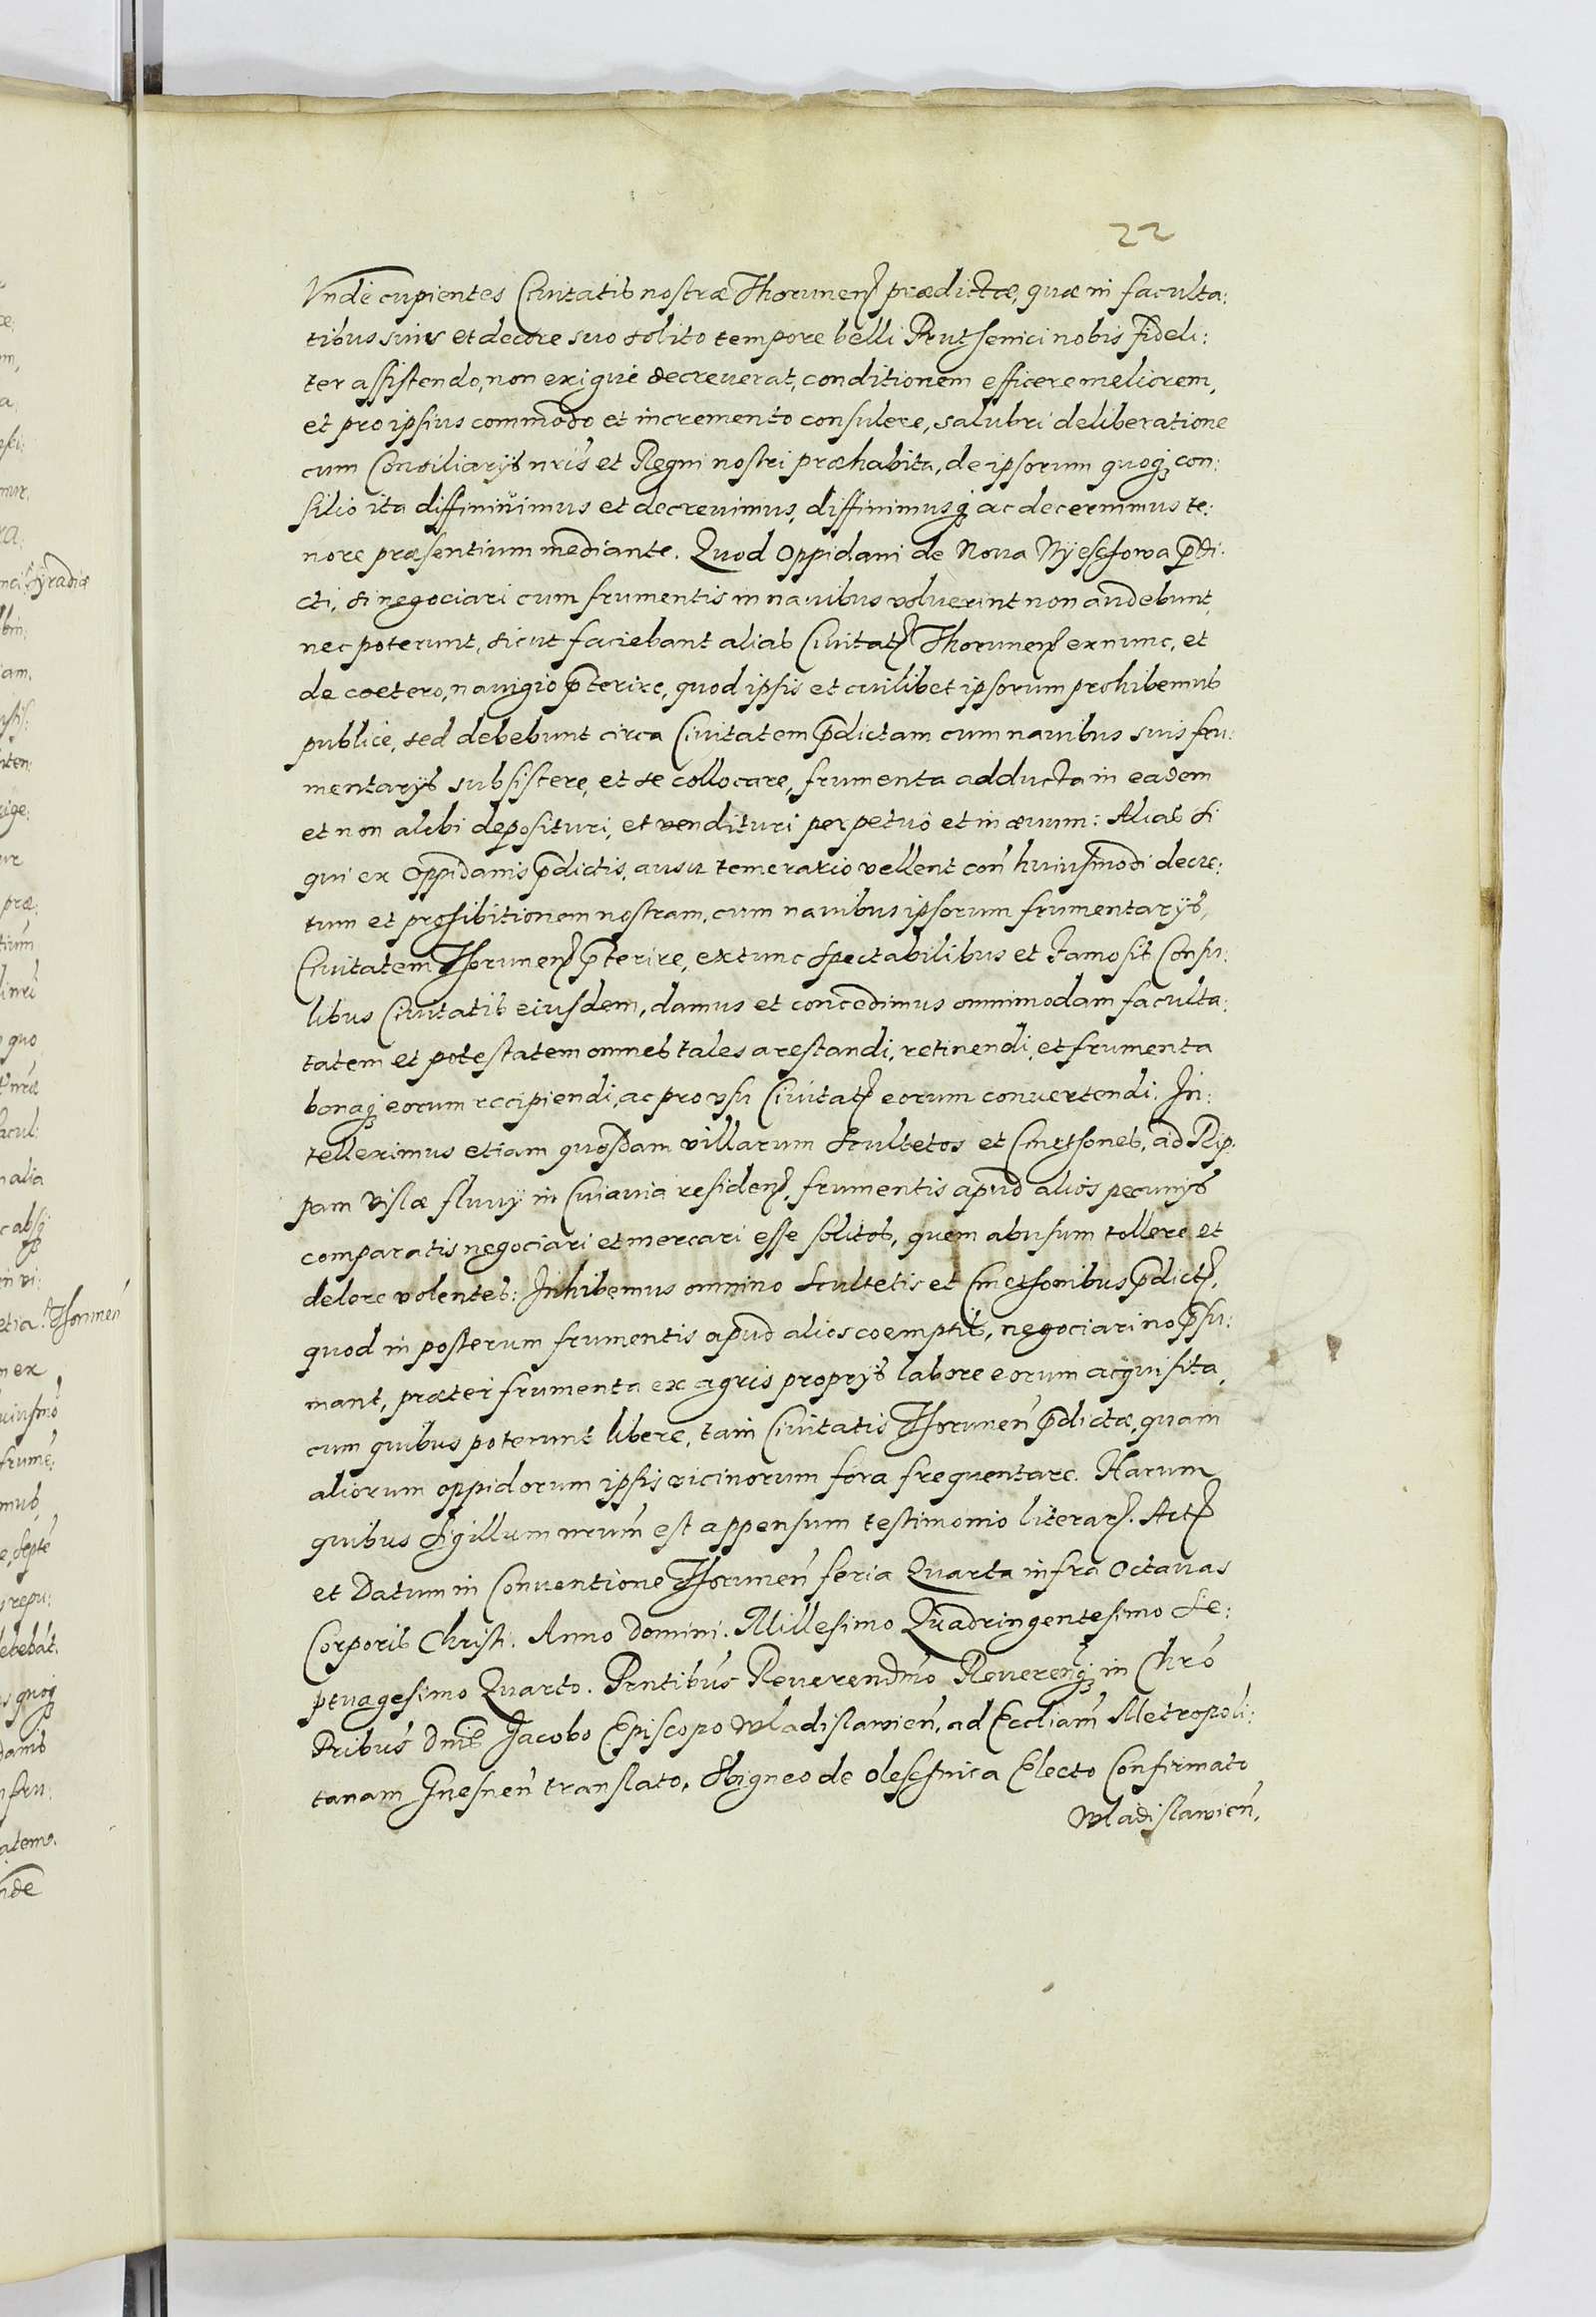 22
Vnde cupientes Ciuitatis nostræ Thorunens prædictæ, quæ in faculta:
tibus suis et decore suo solito tempore belli Pruthenici nobis fideli:
ter assistendo, non exigue decreuerat, conditionem efficere meliorem,
et pro ipsius commodo et incremento consulere, salubri deliberatione
cum Consiliarijs nris et Regni nostri præhabita, de ipsorum quoq; con:
silio ita diffiniuimus et decreuimus, diffinimusq; ac decernimus te:
nore præsentium mediante. Quod Oppidani de Noua Nyeschowa p̄di:
cti, si negociari cum frumentis in nauibus voluerint non audebunt,
nec poterunt, sicut faciebant alias Ciuitatē Thorunens ex nunc, et
de cœtero, nauigio p̄terire, quod ipsis et cuilibet ipsorum prohibemus
publice, sed debebunt circa Ciuitatem p̄dictam cum nauibus suis fru:
mentarijs subsistere, et se collocare, frumenta adducta in eadem
et non alibi deposituri, et vendituri perpetuo et in æuum: Alias si
qui ex Oppidanis p̄dictis, ausu temerario vellent con̄ huiusmodi decre:
tum et prohibitionem nostram, cum nauibus ipsorum frumentarijs,
Ciuitatem Thorunens p̄terire, extunc spectabilibus et famosis Consu:
libus Ciuitatis eiusdem, damus et concedimus omnimodam faculta:
tatem et potestatem omnes tales arestandi, retinendi, et frumenta
bonaq; eorum recipiendi, ac pro vsu Ciuitatis eorum conuertendi. In:
telleximus etiam quosdam villarum Scultetos et Cmethones, ad Rip:
pam Vislæ fluuij in Cuiauia residens, frumentis apud alios pecunijs
comparatis negociari et mercari esse solitos, quem abusum tollere et
delere volentes: Inhibemus omnino Scultetis et Cmethonibus p̄dictis,
quod in posterum frumentis apud alios coemptis, negociari nō p̄su:
mant, præter frumenta ex agris proprijs labore eorum acquisita,
cum quibus poterunt libere, tam Ciuitatis Thorunen̄ p̄dictæ, quam
aliorum oppidorum ipsis vicinorum fora frequentare. Harum
quibus Sigillum nrum̄ est appensum testimonio literarū. Actū
et Datum in Conuentione Thorunen̄ feria Quarta infra Octauas
Corporis Christi. Anno Domini. Millesimo Quadringentesimo Se:
ptuagesimo Quarto. Pr̄ntibus Reuerendmo Reuerenq; in Chrō
Pribus Dnis Jacobo Episcopo Wladislawien̄, ad Eccliam̄ Metropoli:
tanam Gnesnen̄ translato, Sbigneo de Oleschnica Electo Confirmato
Wladislawien̄,